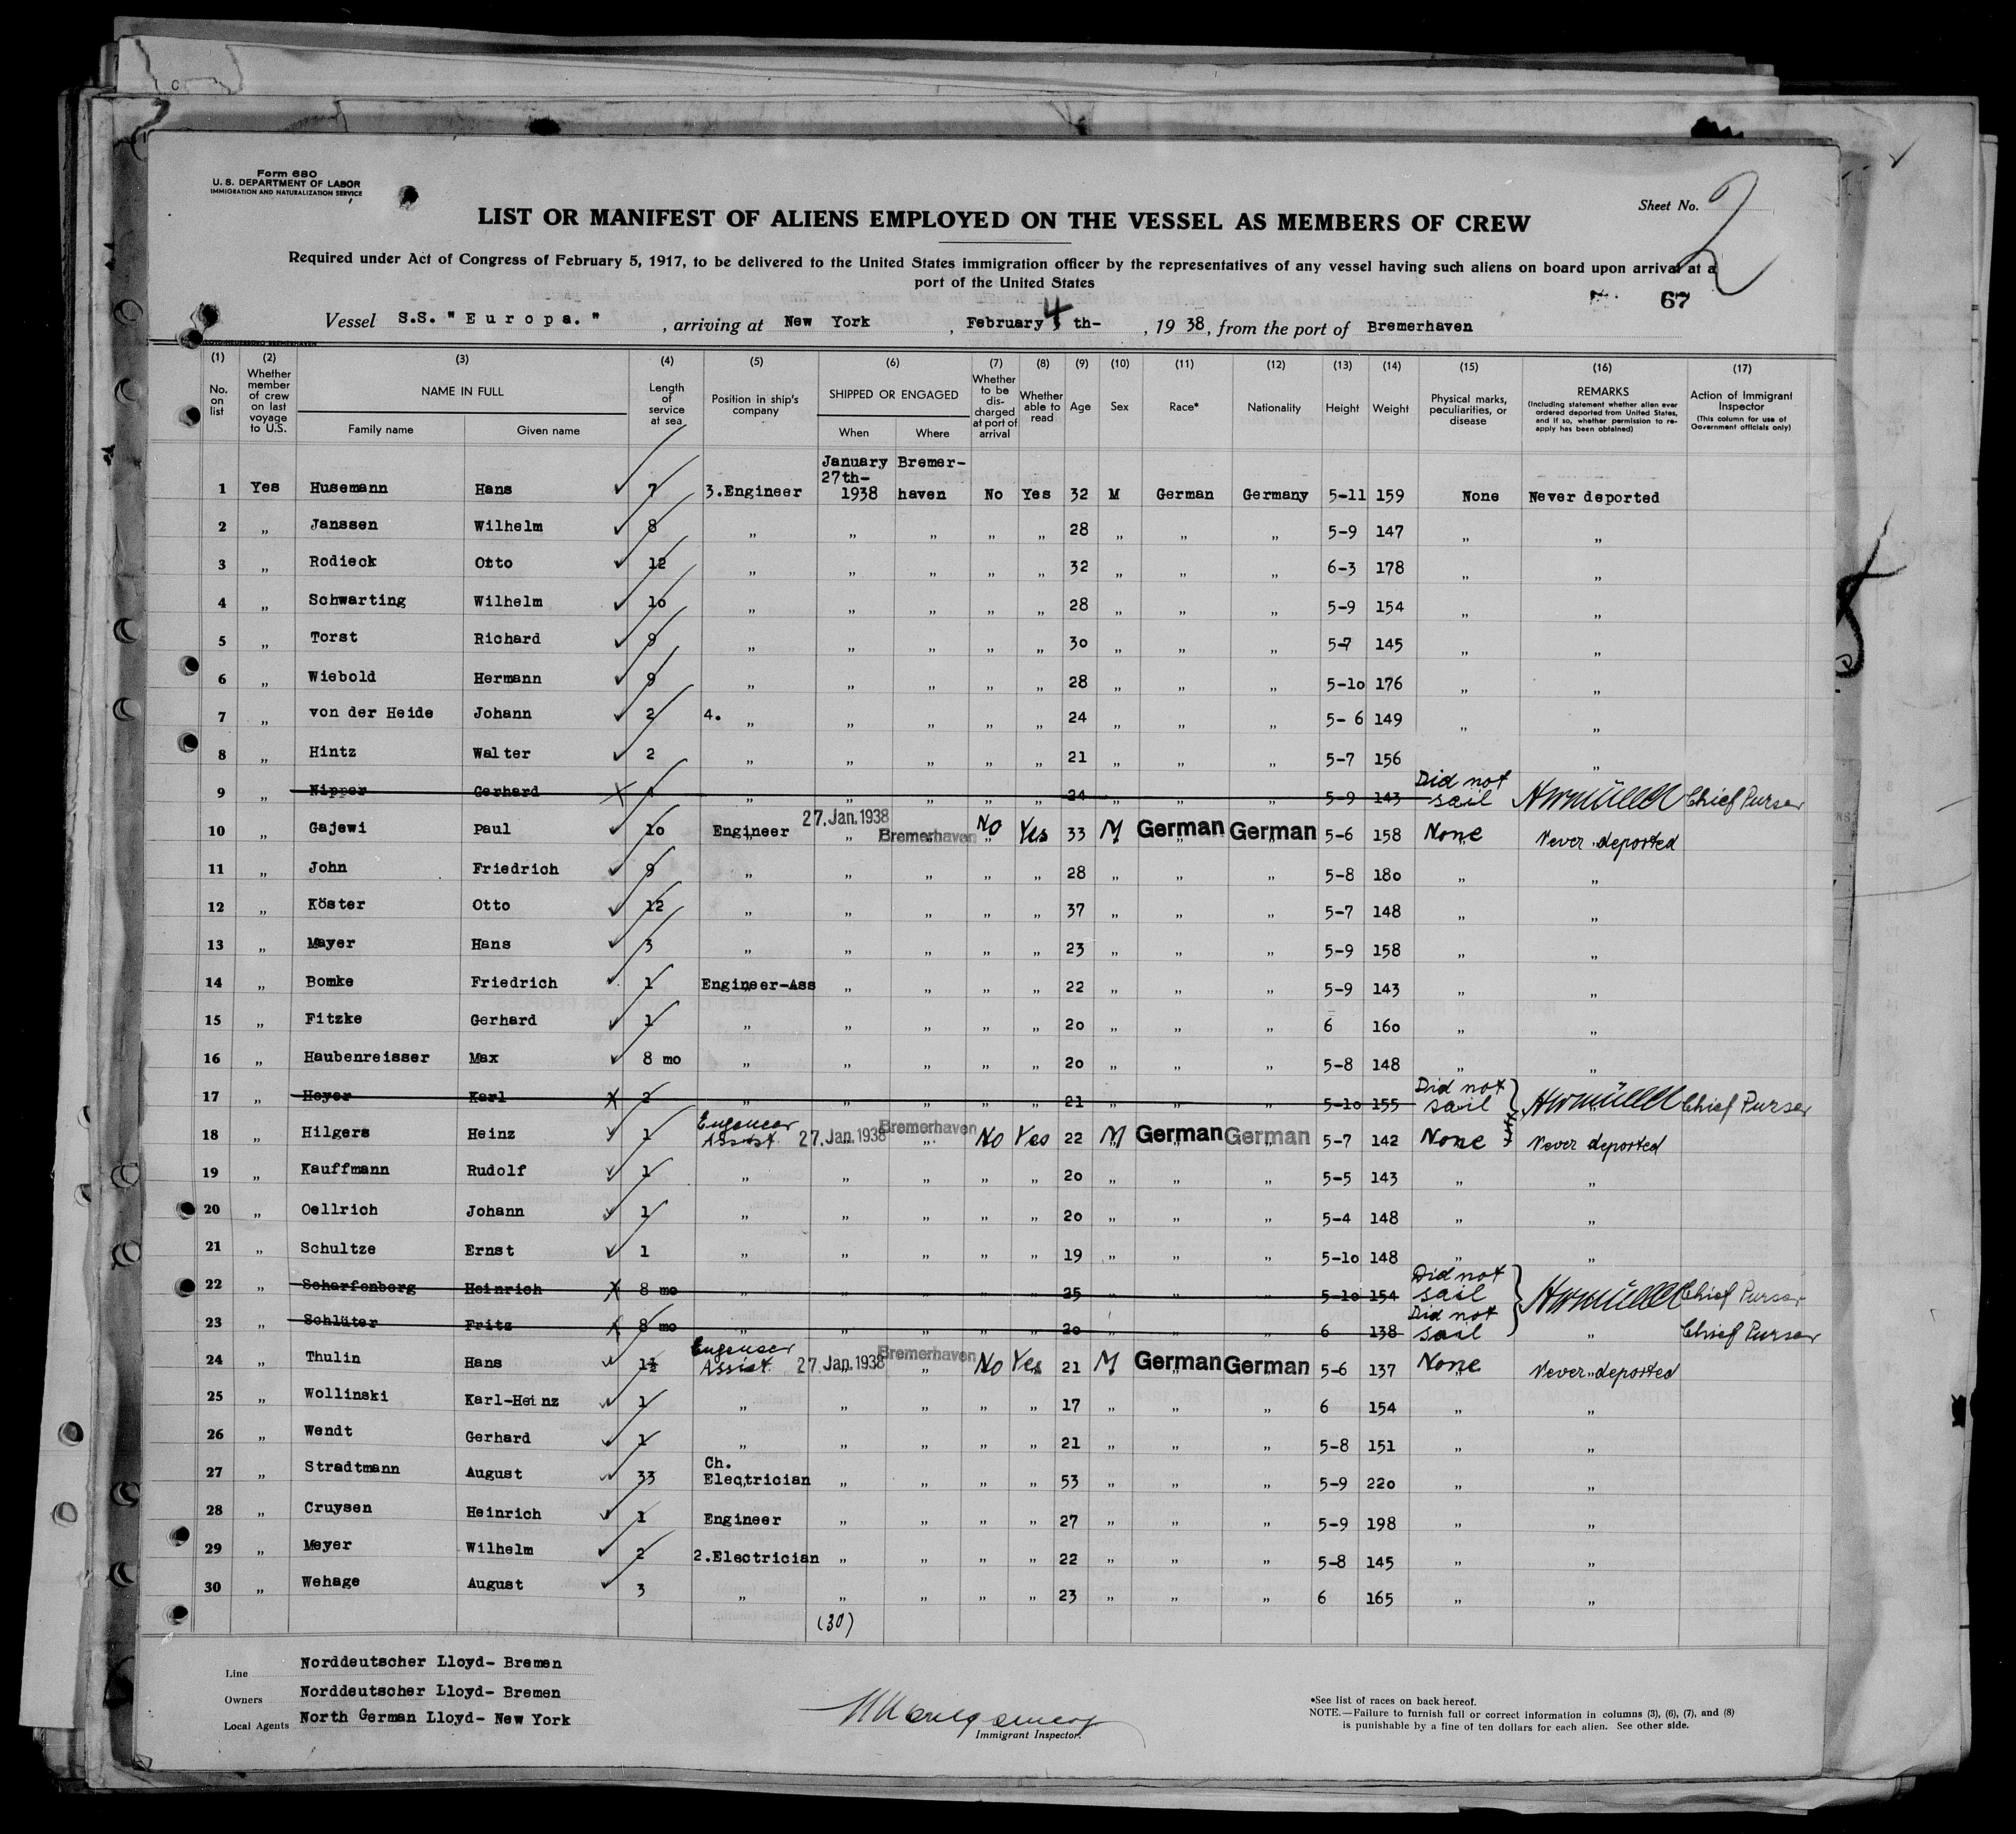 Form 680
U. S. DEPARTMENT OF LABOR
IMMIGRATION AND NATURALIZATION SERVICE
Sheet No. 2
LIST OR MANIFEST OF ALIENS EMPLOYED ON THE VESSEL AS MEMBERS OF CREW
Required under Act of Congress of February 5, 1917, to be delivered to the United States immigration officer by the representatives of any vessel having such aliens on board upon arrival at a
port of the United States
67
Vessel S.S. "Europa." , arriving at New York , February 4 th- , 19 38, from the port of Bremerhaven
(1) (2) (3) (4) (5) (6) (7) (8) (9) (10) (11) (12) (13) (14) (15) (16) (17)
No. on list
Whether member of crew on last voyage to U.S.
NAME IN FULL
Family name Given name
Length of service at sea
Position in ship's company
SHIPPED OR ENGAGED
When Where
Whether to be discharged at port of arrival
Whether able to read
Age Sex Race* Nationality Height Weight
Physical marks, peculiarities, or disease
REMARKS
(Including statement whether alien ever ordered deported from United States, and if so, whether permission to reapply has been obtained)
Action of Immigrant Inspector
(This column for use of Government officials only)
1 Yes Husemann Hans 7 3.Engineer January 27th- 1938 Bremer- haven No Yes 32 M German Germany 5-11 159 None Never deported
2 „ Janssen Wilhelm 8 „ „ „ „ „ 28 „ „ „ 5-9 147 „ „
3 „ Rodieck Otto 12 „ „ „ „ „ 32 „ „ „ 6-3 178 „ „
4 „ Schwarting Wilhelm 10 „ „ „ „ „ 28 „ „ „ 5-9 154 „ „
5 „ Torst Richard 9 „ „ „ „ „ 30 „ „ „ 5-7 145 „ „
6 „ Wiebold Hermann 9 „ „ „ „ „ 28 „ „ „ 5-10 176 „ „
7 „ von der Heide Johann 2 4. „ „ „ „ „ 24 „ „ „ 5- 6 149 „ „
8 „ Hintz Walter 2 „ „ „ „ „ 21 „ „ „ 5-7 156 „
9 „ Nipper Gerhard „ „ „ „ „ 24 „ „ „ 5-9 143 Did not sail Chief Purser
10 „ Gajewi Paul 10 Engineer 27. Jan. 1938 Bremerhaven No Yes 33 M German German 5-6 158 None Never deported
11 „ John Friedrich 9 „ „ „ „ „ 28 „ „ „ 5-8 180 „ „
12 „ Köster Otto 12 „ „ „ „ „ 37 „ „ „ 5-7 148 „ „
13 „ Mayer Hans 3 „ „ „ „ „ 23 „ „ „ 5-9 158 „ „
14 „ Bomke Friedrich 1 Engineer-Ass „ „ „ „ 22 „ „ „ 5-9 143 „ „
15 „ Fitzke Gerhard 1 „ „ „ „ „ 20 „ „ „ 6 160 „ „
16 „ Haubenreisser Max 8 mo „ „ „ „ „ 20 „ „ „ 5-8 148 „ „
17 „ Heyer Karl 2 „ „ „ „ „ 21 „ „ „ 5-10 155 Did not sail Chief Purser
18 „ Hilgers Heinz 1 Engeneer Assist. 27. Jan. 1938 Bremerhaven No Yes 22 M German German 5-7 142 None Never deported
19 „ Kauffmann Rudolf 1 „ „ „ „ „ 20 „ „ „ 5-5 143 „ „
20 „ Oellrich Johann 1 „ „ „ „ „ 20 „ „ „ 5-4 148 „ „
21 „ Schultze Ernst 1 „ „ „ „ „ 19 „ „ „ 5-10 148 „ „
22 „ Scharfenberg Heinrich 8 mo „ „ „ „ „ 25 „ „ „ 5-10 154 Did not sail Chief Purser
23 „ Schlüter Fritz 8 mo „ „ „ „ „ 20 „ „ „ 6 138 Did not sail „ Chief Purser
24 „ Thulin Hans 1½ Engeneer Assist. 27. Jan. 1938 Bremerhaven No Yes 21 M German German 5-6 137 None Never deported
25 „ Wollinski Karl-Heinz 1 „ „ „ „ „ 17 „ „ „ 6 154 „ „
26 „ Wendt Gerhard 1 „ „ „ „ „ 21 „ „ „ 5-8 151 „ „
27 „ Stradtmann August 33 Ch. Electrician „ „ „ „ 53 „ „ „ 5-9 220 „ „
28 „ Cruysen Heinrich 1 Engineer „ „ „ „ 27 „ „ „ 5-9 198 „ „
29 „ Meyer Wilhelm 2 2.Electrician „ „ „ „ 22 „ „ „ 5-8 145 „ „
30 „ Wehage August 3 „ „ „ „ „ 23 „ „ „ 6 165 „ „
(30)
Line Norddeutscher Lloyd- Bremen
Owners Norddeutscher Lloyd- Bremen
Local Agents North German Lloyd- New York
Immigrant Inspector.
*See list of races on back hereof.
NOTE.—Failure to furnish full or correct information in columns (3), (6), (7), and (8)
is punishable by a fine of ten dollars for each alien. See other side.